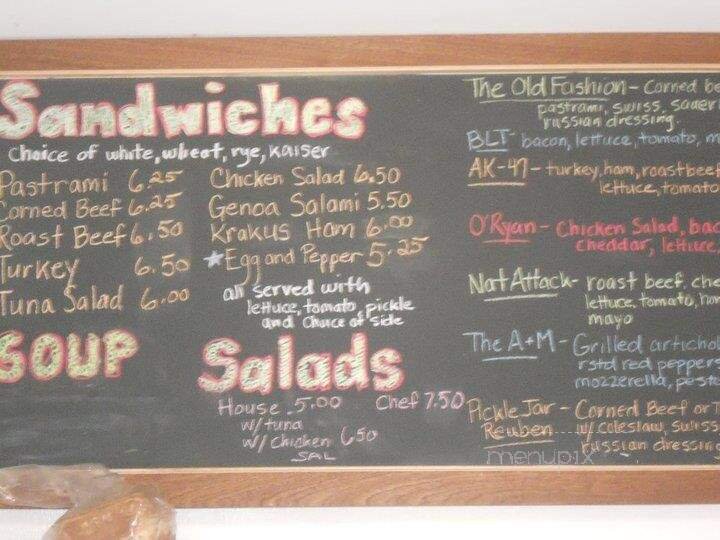 Sandwiches
Choice of white, wheat, rye, Kaiser
Pastrami 6.25
Corned Beef 6.25
Roast Beef 6.50
Turkey 6.50
Tuna Salad 6.00
Chicken Salad 6.50
Genoa Salami 5.50
Krakus Ham 6.00
*Egg and Pepper 5.25
all served with
lettuce, tomato, pickle
and Choice of side
SOUP
Salads
House 5.00 Chef 7.50
w/ tuna
w/ Chicken 6.50
SAL
The Old Fashion - Corned
pastrami, swiss,
russian dressing.
BLT - bacon, lettuce, tomato,
AK-47 - turkey, ham, roast beef
lettuce, tomato
O'Ryan - Chicken Salad,
cheddar, lettuce,
Nat Attack - roast beef,
lettuce, tomato,
mayo
The A+M - Grilled
rstd red peppers
mozzerella, pesto
Pickle Jar - Corned Beef or
Reuben w/ coleslaw, swiss
russian dressing
menupix